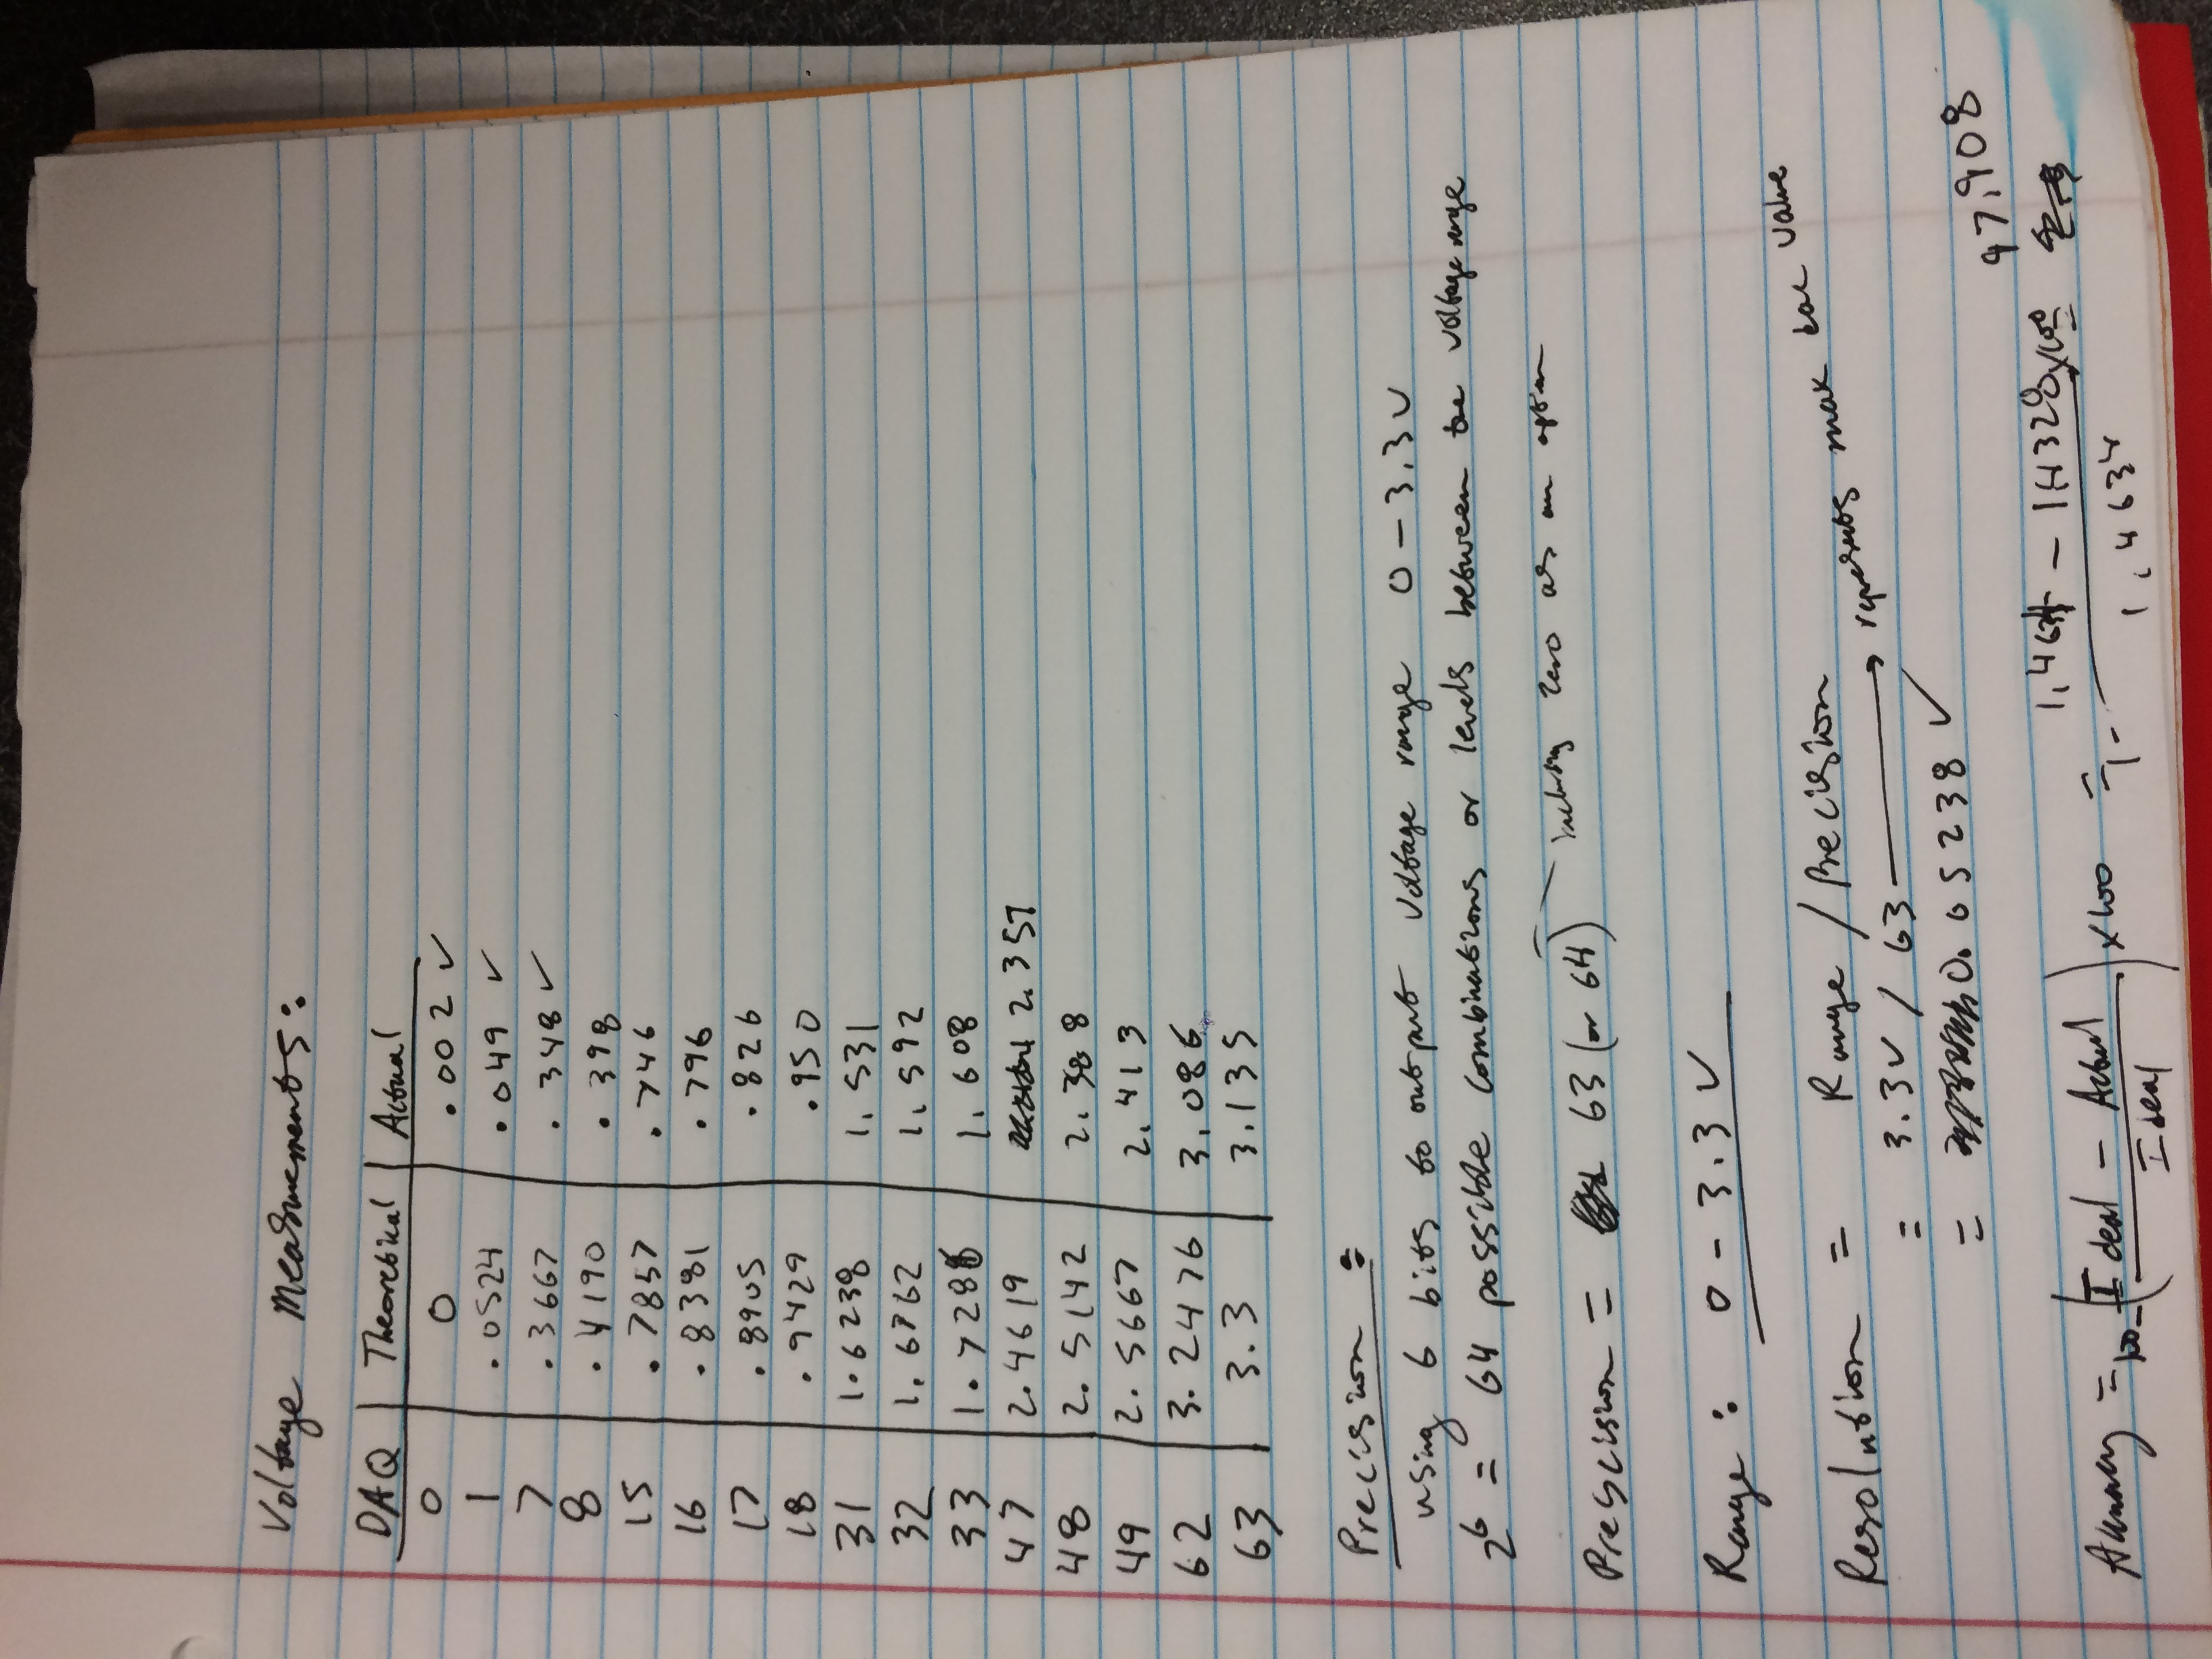 Voltage measurements:
DAQ Theoretical Actual
0 0 .002 ✓
1 .0524 .049 ✓
7 .3667 .348 ✓
8 .4190 .398
15 .7857 .746
16 .8381 .796
17 .8905 .826
18 .9429 .950
31 1.6238 1.531
32 1.6762 1.592
33 1.7286 1.608
47 2.4619 2.357
48 2.5142 2.388
49 2.5667 2.413
62 3.2476 3.086
63 3.3 3.135
Precision =
using 6 bits to output voltage range 0 - 3.3V
2^6 = 64 possible combinations or levels between the voltage range
Prescision = 63 (or 64) including zero as an option
Range : 0 - 3.3 V
Resolution = Range / Precision
= 3.3V / 63 → represents max dac value
= 0.05238 ✓
Accuracy = 100 - (Ideal - Actual / Ideal) x 100 = 1 - 1.4634 - 1.4328 x 100 / 1.4634 = 97.908